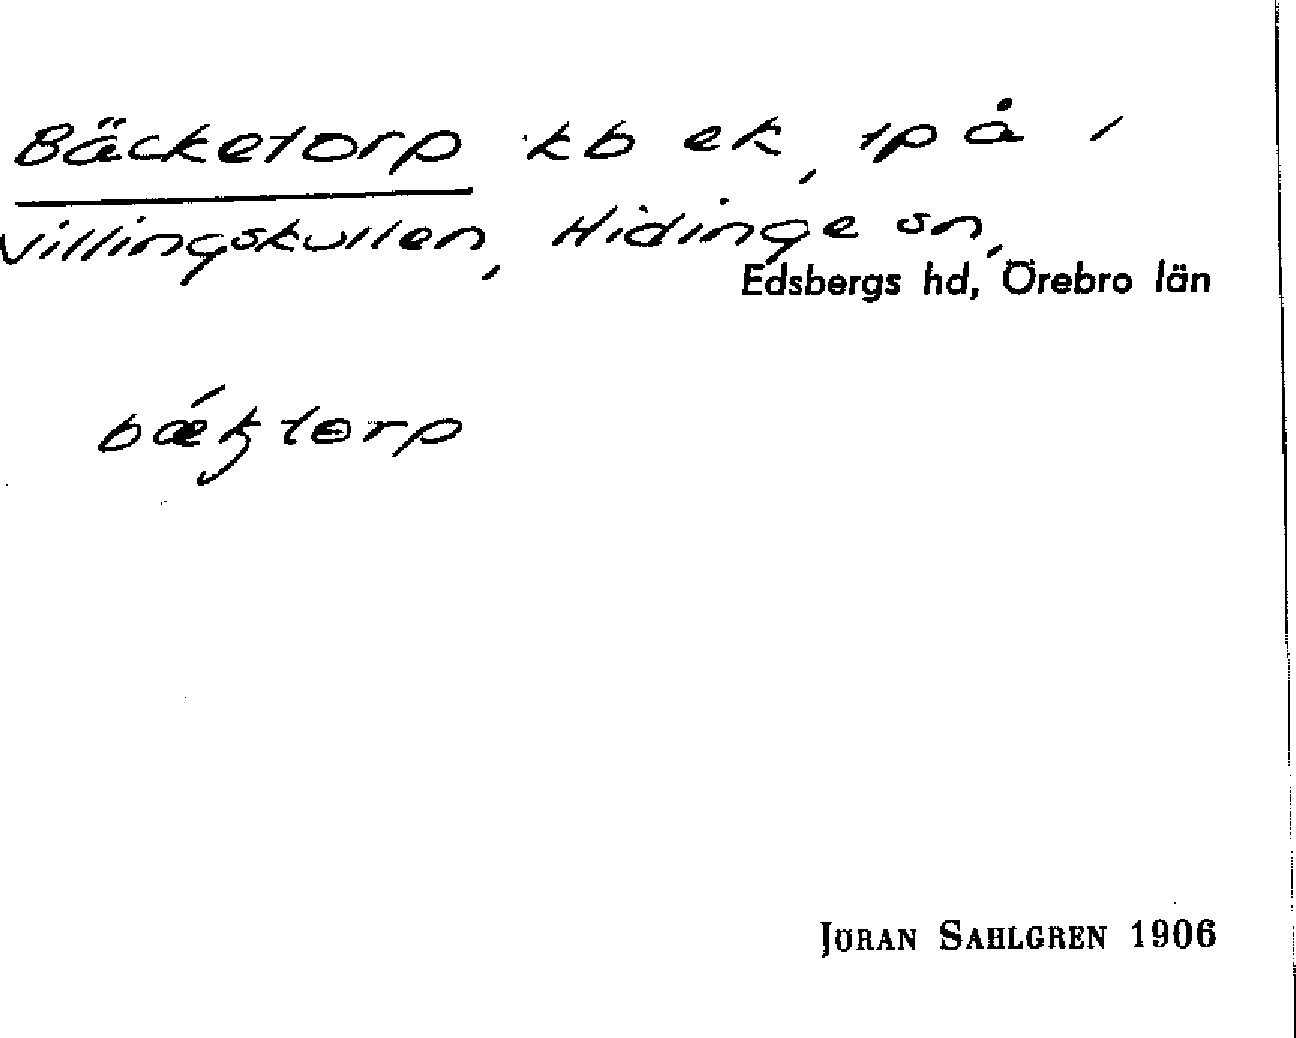 Bäcketorp kb ek, tp å /
Villingskullen, Hidinge sn,
Edsbergs hd, Örebro län
JÖRAN SAHLGREN 1906